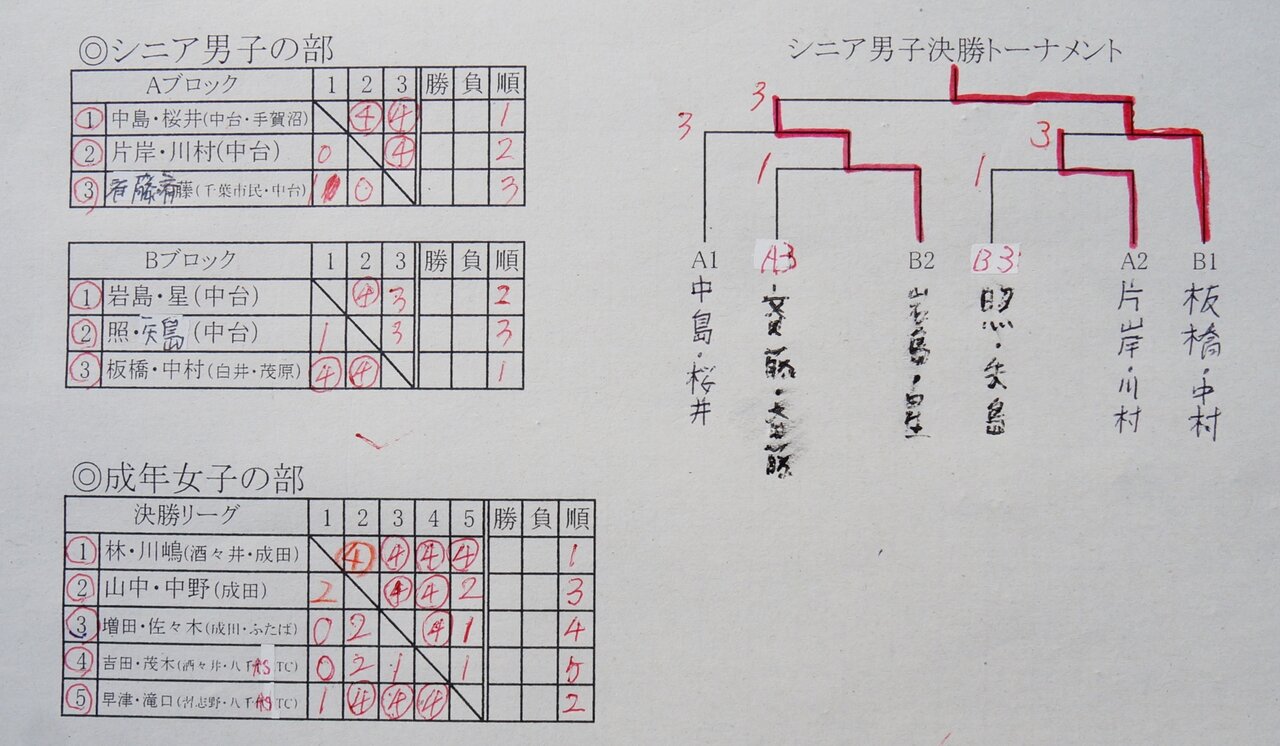 ◎シニア男子の部
Aブロック 1 2 3 勝 負 順
① 中島・桜井(中台・手賀沼) ④ ④ 1
② 片岸・川村(中台) 0 ④ 2
③ 斉藤・斉藤(千葉市民・中台) 1 0 3
Bブロック 1 2 3 勝 負 順
① 岩島・星(中台) ④ 3 2
② 照・矢島(中台) 1 3 3
③ 板橋・中村(白井・茂原) ④ ④ 1
◎成年女子の部
決勝リーグ 1 2 3 4 5 勝 負 順
① 林・川嶋(酒々井・成田) ④ ④ ④ ④ 1
② 山中・中野(成田) 2 ④ ④ 2 3
③ 増田・佐々木(成田・ふたば) 0 2 ④ 1 4
④ 吉田・茂木(酒々井・八千AS TC) 0 2 1 1 5
⑤ 早津・滝口(習志野・八千AS TC) 1 ④ ④ ④ 2
シニア男子決勝トーナメント
3
3 3
1 1
A1 A3 B2 B3 A2 B1
中島・桜井
斉藤・斉藤
岩島・星
照・矢島
片岸・川村
板橋・中村